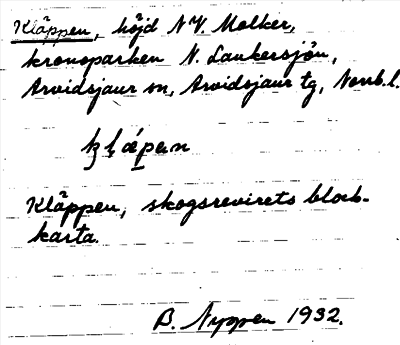 Kläppen, höjd N.V. Molker,
kronoparken N. Laukersjön,
Arvidsjaur sn, Arvidsjaur tg, Norrb. l.
kl̥ǽpan
Kläppen, skogsrevirets block-
karta.
B. Nyppen 1932.